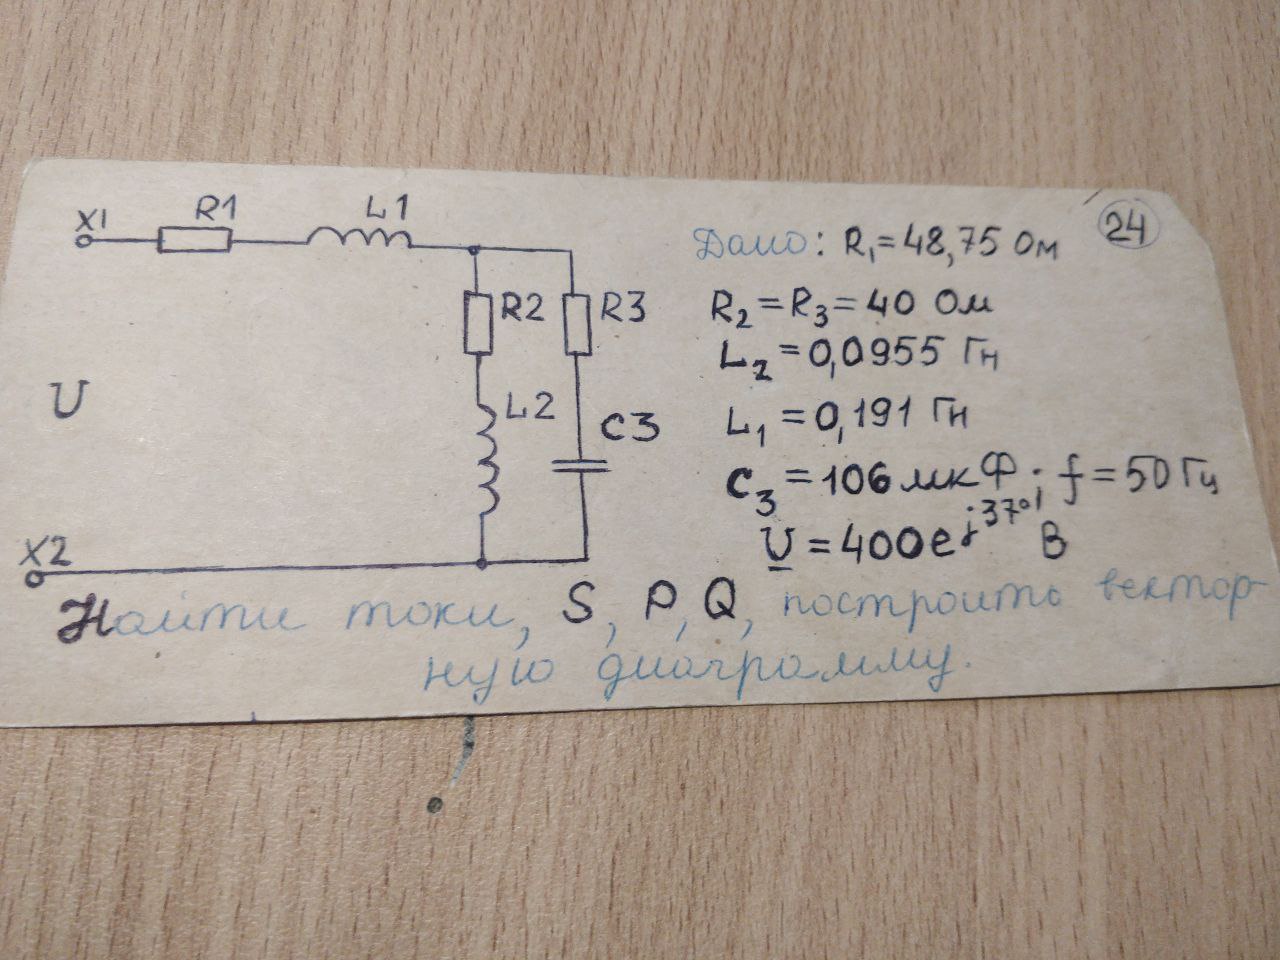 24
X1
R1
L1
R2
R3
U
L2
C3
X2
Дано: R₁ = 48,75 Ом
R₂ = R₃ = 40 Ом
L₂ = 0,0955 Гн
L₁ = 0,191 Гн
C₃ = 106 мкФ; f = 50 Гц
U = 400 e^j37° В
Найти токи, S, P, Q, построить вектор-
ную диаграмму.